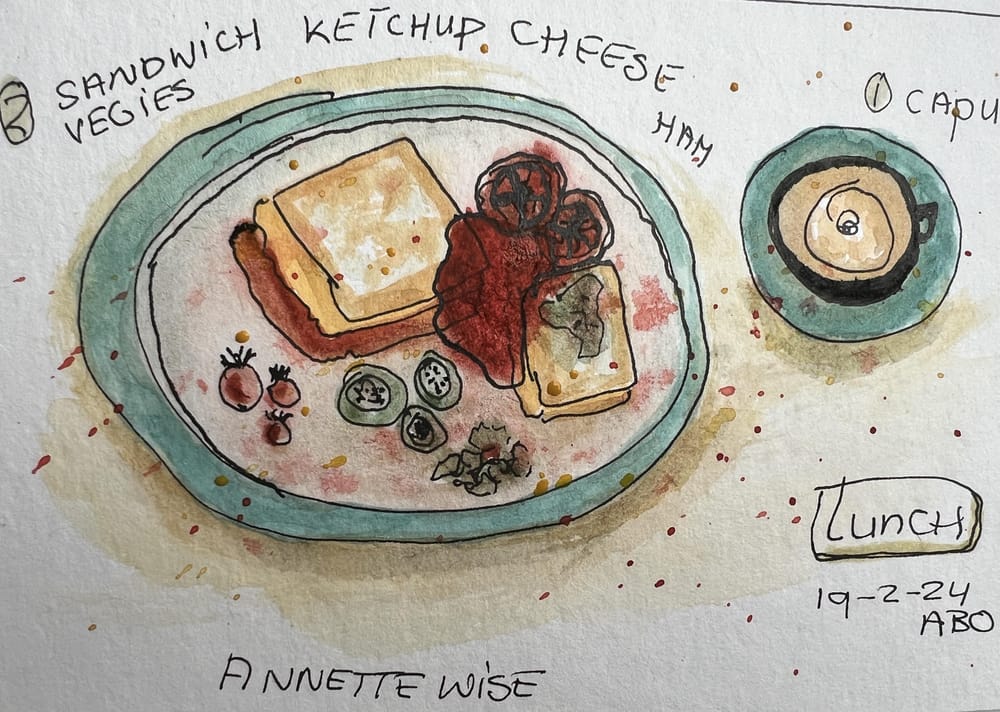 ② SANDWICH KETCHUP CHEESE
VEGIES
HAM
① CAPU
Lunch
19-2-24
ABO
ANNETTE WISE